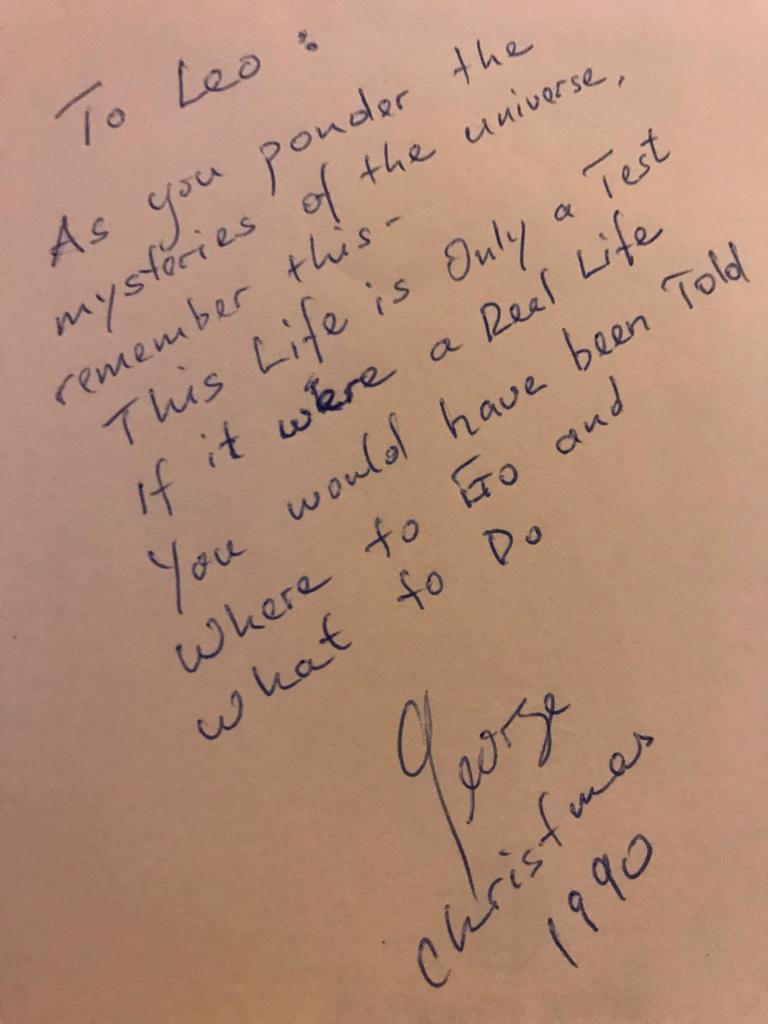 To Leo:
As you ponder the
mysteries of the universe,
remember this-
This Life is Only a Test
If it were a Real Life
You would have been Told
Where to Go and
What to Do
George
Christmas
1990